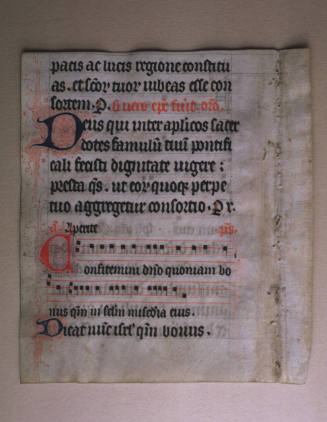 pacis ac lucis regione constitu
as. et scōr tuor iubeas esse con
sortem. P.
Deus qui inter aplicos sacer
dotes famulū tuū pontifi
cali fecisti dignitate uigere:
presta qs. ut eor quoqз perpe
tuo aggregetur consortio. Pr.
a. Aperite ps.
Confitemini dnō quoniam bo
nus qm in sclm misedia eius.
Dicat nūc isrl qm bonus.